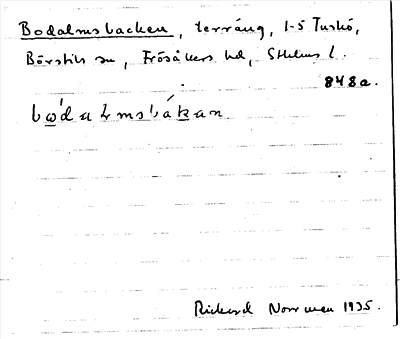 Bodalmsbacken, terräng, 1-5 Tuskö,
Börstils sn, Frösåkers hd, Sthlms l.
848a.
Rickard Norrman 1935.